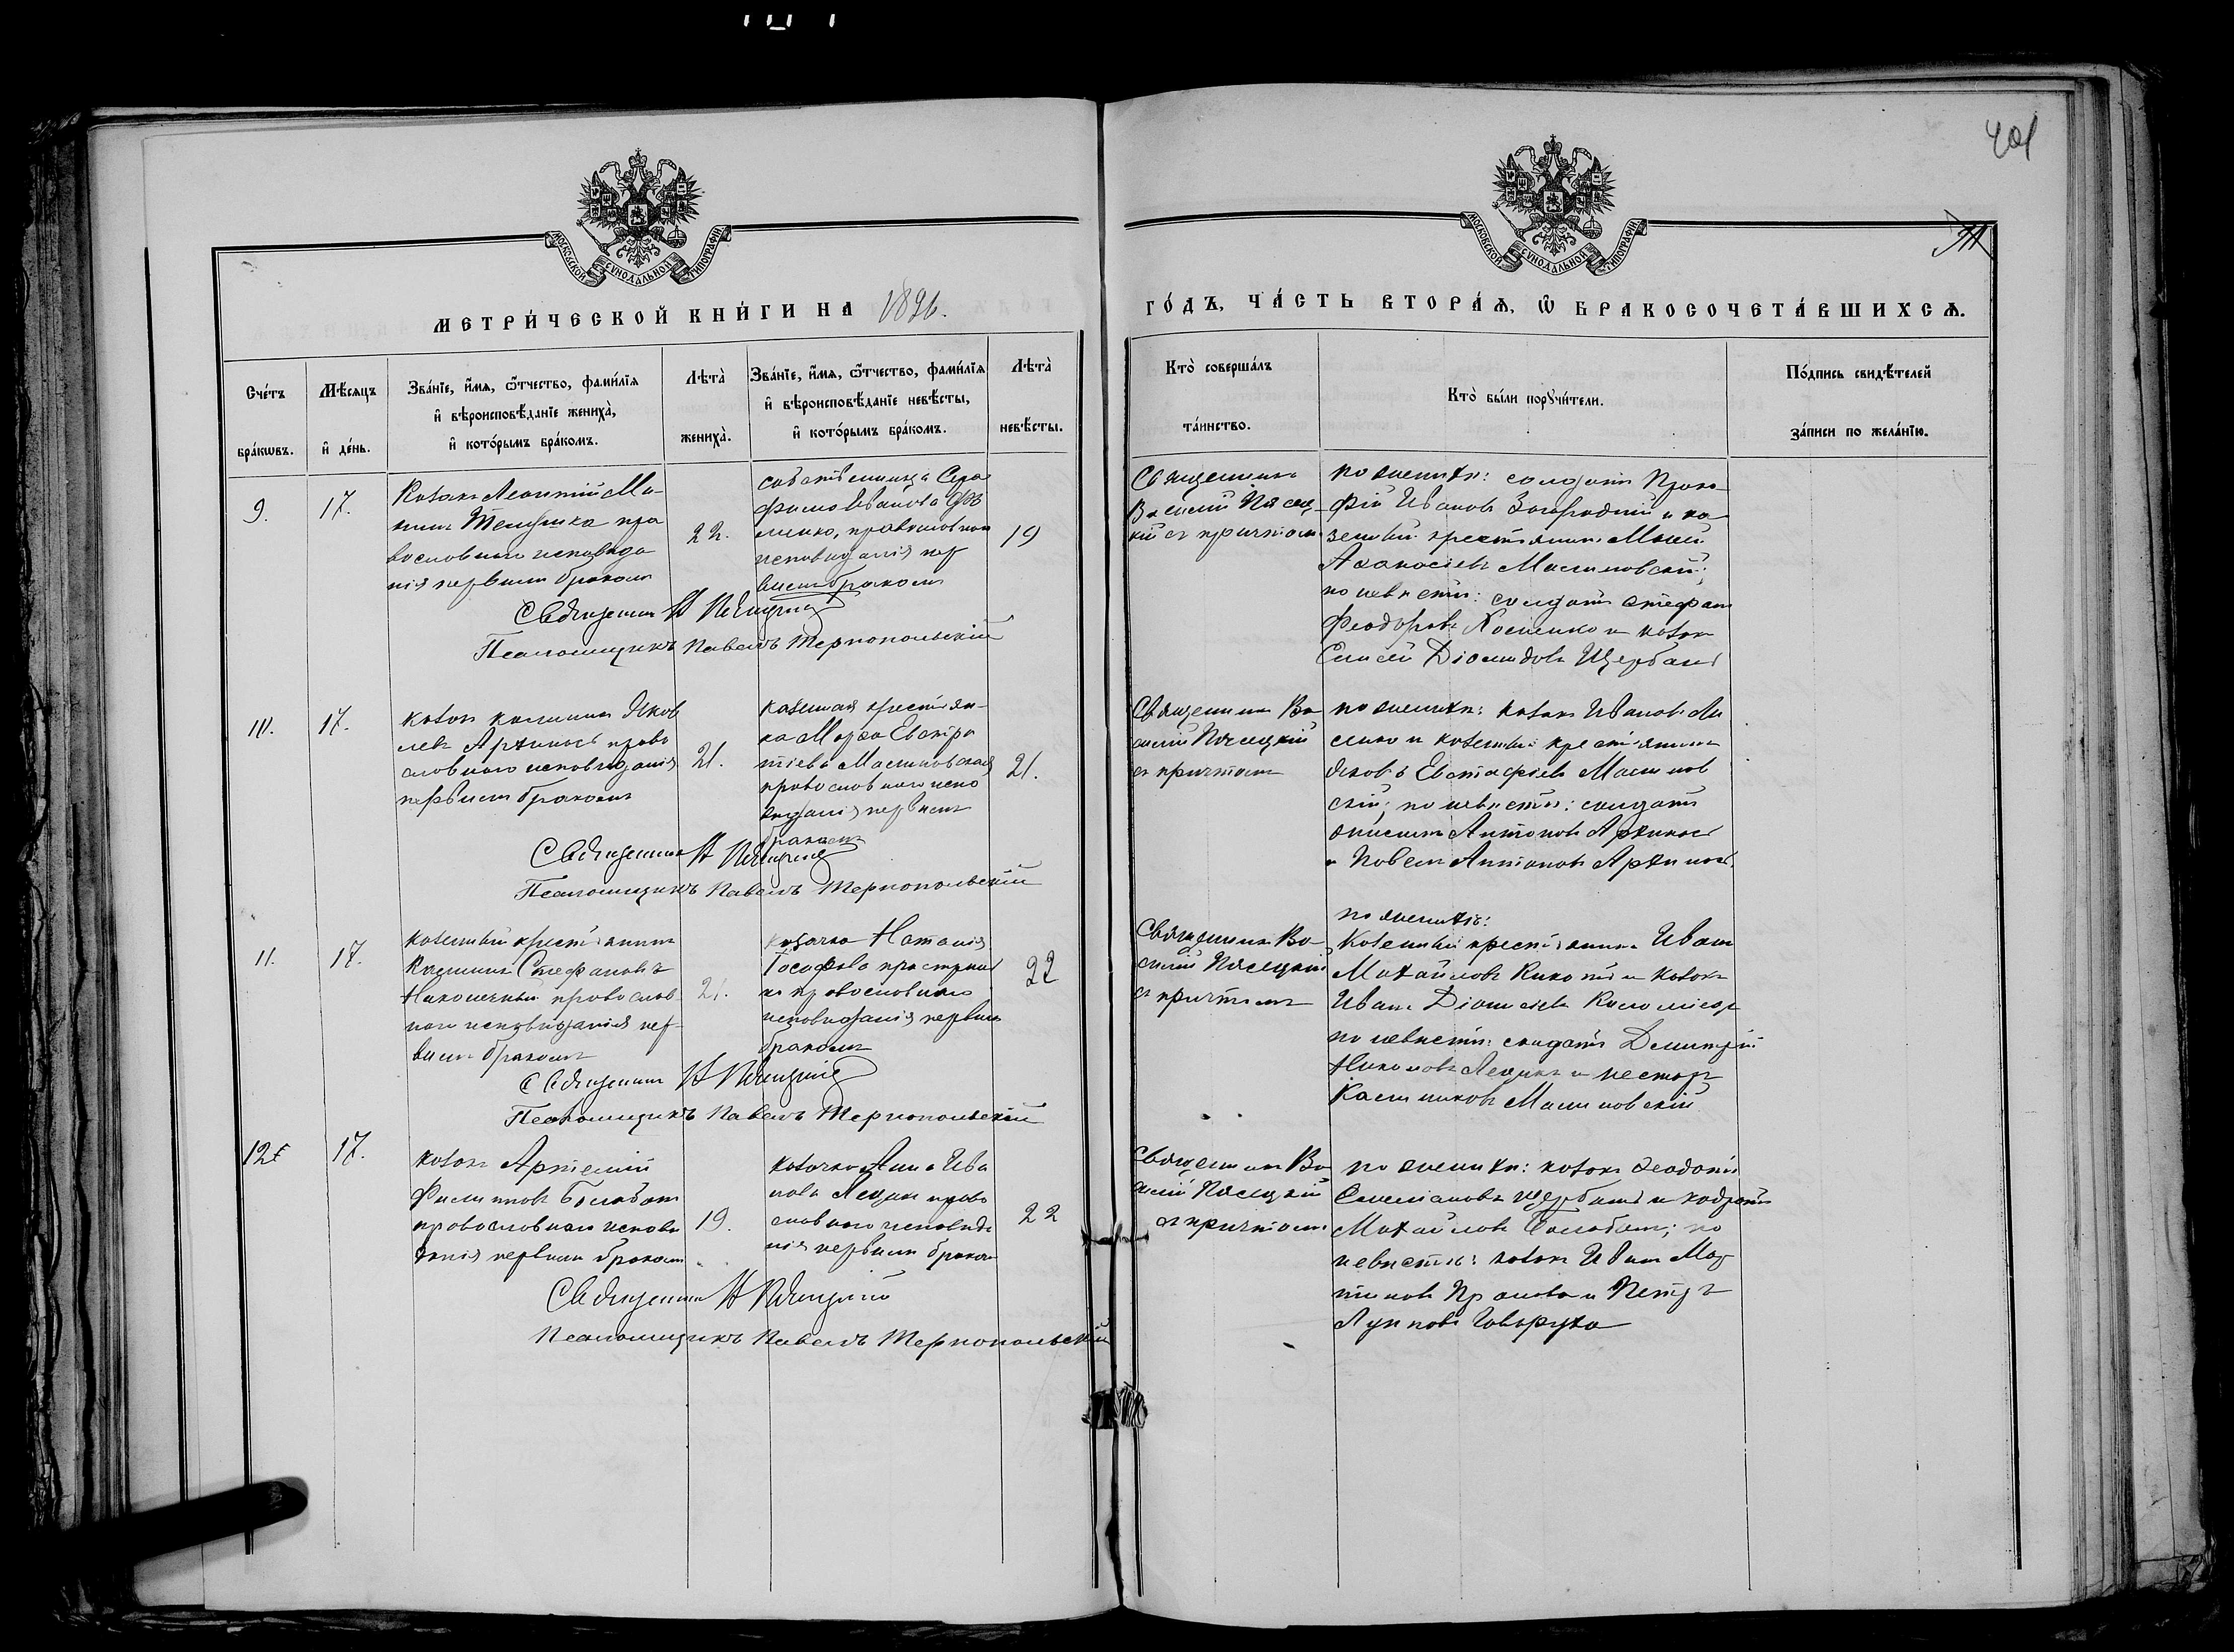 401
МОСКОВСКОЙ СѴНОДАЛЬНОЙ ТИПОГРАФІИ
МОСКОВСКОЙ СѴНОДАЛЬНОЙ ТИПОГРАФІИ
МЕТРИ́ЧЕСКОЙ КНИ́ГИ НА 1896.
ГО́ДЪ, ЧА́СТЬ ВТОРА́Ѧ, Ѽ БРАКОСОЧЕТА́ВШИХСѦ.
Сче́тъ бра́кѡвъ.
Мѣ́сѧцъ и҆ де́нь.
Зва́нїе, и҆́мѧ, ѻ҆́тчество, фами́лїѧ
и҆ вѣроисповѣ́данїе жениха̀,
и҆ кото́рымъ бра́комъ.
Лѣта̀ жениха̀.
Зва́нїе, и҆́мѧ, ѻ҆́тчество, фами́лїѧ
и҆ вѣроисповѣ́данїе невѣ́сты,
и҆ кото́рымъ бра́комъ.
Лѣта̀ невѣ́сты.
Кто̀ соверша́лъ та́инство.
Кто̀ бы́ли порꙋчи́тели.
По́дпись свидѣ́телей
за́писи по жела́нїю.
9.
17.
Козакъ Леонтий
пра
вославнаго исповѣда
нія первымъ бракомъ
22.
Сера
фима Иванова
православнаго
исповѣданія пер
вымъ бракомъ
19
Священникъ
Василій Пясец
кій съ причтомъ
по женихѣ: солдатъ Проко
фій Ивановъ Загородній и ка
зенный крестьянинъ
Аѳанасіевъ Малиновскій;
по невѣстѣ: солдатъ Стефанъ
Феодоровъ и козакъ
Діомидовъ Щербань
Священникъ В Пясецкій
Псаломщикъ Павелъ Тернопольскій
10.
17.
козакъ Яков
левъ Архипось право
славнаго исповѣданія
первымъ бракомъ
21.
казенная крестьян-
ка Марѳа
Малиновская
православнаго испо
вѣданія первымъ
бракомъ
21.
Священникъ Ва
силій Пясецкій
съ причтомъ
по женихѣ: козакъ Ивановъ
и казенный крестьянинъ
Яковъ Евстафіевъ Малинов
скій; по невѣстѣ: солдатъ
Антоновъ Архипось
и Павелъ Антоновъ Архипось
Священникъ В Пясецкій
Псаломщикъ Павелъ Тернопольскій
11.
17.
казенный крестьянинъ
Стефановъ
Наконечный православ
наго исповѣданія пер-
вымъ бракомъ
21.
козачка Наталія
Іосифова
православнаго
исповѣданія первымъ
бракомъ
22
Священникъ Ва
силій Пясецкій
съ причтомъ
по женихѣ:
Казенный крестьянинъ Иванъ
Михайловъ и козакъ
Иванъ Коломіецъ
по невѣстѣ: солдатъ Димитрій
Никоновъ и Несторъ
Малиновскій
Священникъ В Пясецкій
Псаломщикъ Павелъ Тернопольскій
12
17.
козакъ Артемій
Филиповъ Балабанъ
православнаго исповѣ
данія первымъ бракомъ
19.
козачка Анна Ива
нова право
славнаго исповѣда
нія первымъ бракомъ
22
Священникъ Ва
силій Пясецкій
съ причтомъ
по женихѣ: козакъ Феодотъ
Щербань и Кодратъ
Михайловъ Балабанъ; по
невѣстѣ: козакъ Иванъ Мар
тиновъ и Петръ
Говоруха
Священникъ В Пясецкій
Псаломщикъ Павелъ Тернопольскій